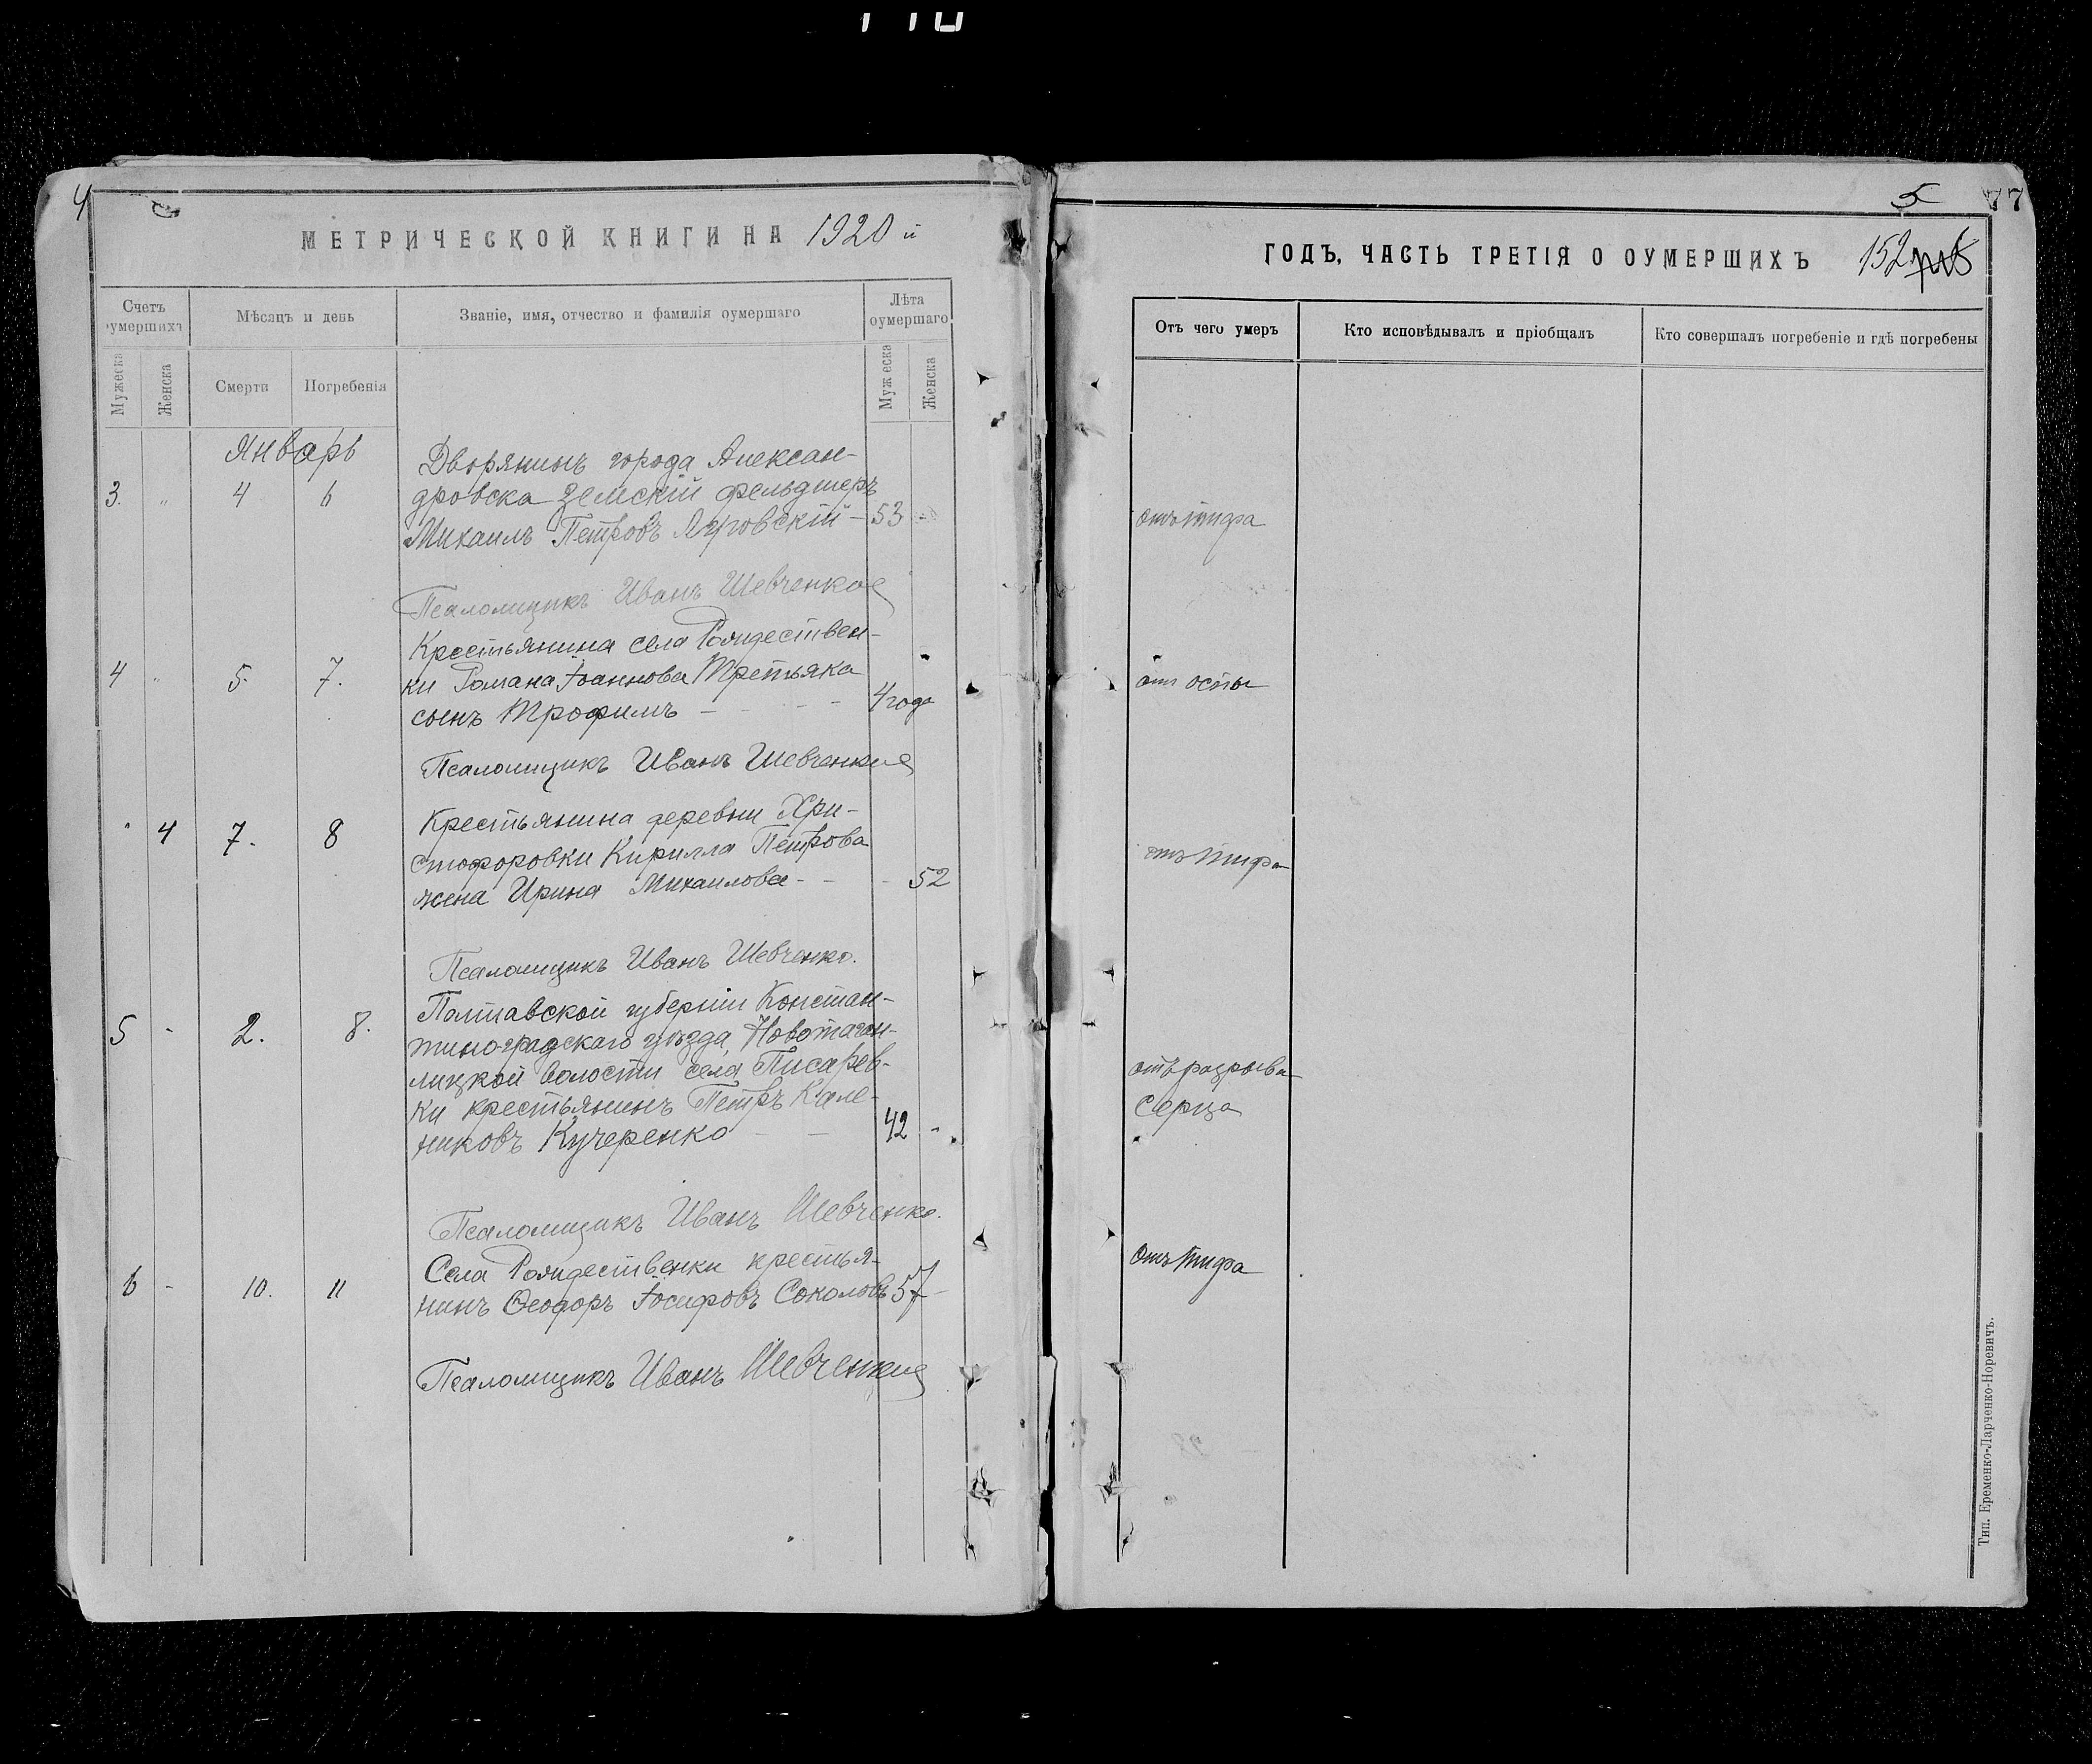 4
МЕТРИЧЕСКОЙ КНИГИ НА 1920 й
Счетъ умершихъ
Мѣсяцъ и день
Званіе, имя, отчество и фамилія оумершаго
Лѣта оумершаго
Мужеска
Женска
Смерти
Погребенія
Мужеска
Женска
Январь
3. " 4 6
Дворянинъ города Алексан-
дровска Земскій фельдшеръ
Михаилъ Петровъ 53 -
Псаломщикъ Иванъ Шевченко
4 " 5. 7.
Крестьянина села Рождествен-
ки Романа Іоаннова Третьяка
сынъ Трофимъ - - - - 4 года
Псаломщикъ Иванъ Шевченко
" 4 7. 8
Крестьянина деревни Хри-
стофоровки Кирилла Петрова
жена Ирина Михаилова - - - 52
Псаломщикъ Иванъ Шевченко.
5 - 2. 8.
Полтавской губерніи Констан-
тиноградскаго уѣзда Новотаган-
лицкой волости села Писарев-
ки крестьянинъ Петръ Кале-
никовъ Кучеренко - - 42 -
Псаломщикъ Иванъ Шевченко.
6 - 10. 11
Села Рождественки крестья-
нинъ Ѳеодоръ Іосифовъ Соколовъ 57 -
Псаломщикъ Иванъ Шевченко
5 77
ГОДЪ, ЧАСТЬ ТРЕТІЯ О ОУМЕРШИХЪ 152
Отъ чего умеръ
Кто исповѣдывалъ и пріобщалъ
Кто совершалъ погребеніе и гдѣ погребены
отъ тифа
отъ оспы
отъ тифа
отъ разрыва
серца
отъ тифа
Тип. Еременко-Ларченко-Норевичъ.